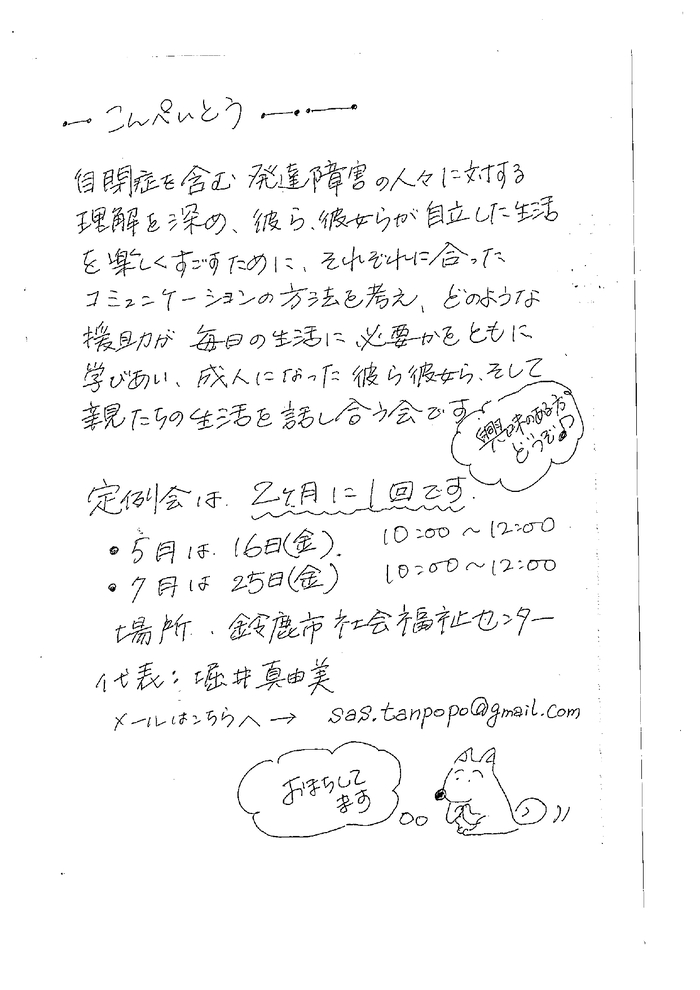 こんぺいとう
自閉症を含む 発達障害の人々に対する
理解を深め、彼ら、彼女らが自立した生活
を楽しくすごすために、それぞれに合った
コミュニケーションの方法を考え、どのような
援助が 毎日の生活に必要かをともに
学びあい、成人になった彼ら彼女ら、そして
親たちの生活を話し合う会です。
興味のある方
どうぞ♪
定例会は、2ヶ月に1回です。
・5月は 16日(金). 10:00～12:00
・7月は 25日(金) 10:00～12:00
場所、鈴鹿市社会福祉センター
代表: 堀井真由美
メールはこちらへ→ sas.tanpopo@gmail.com
おまちして
ます